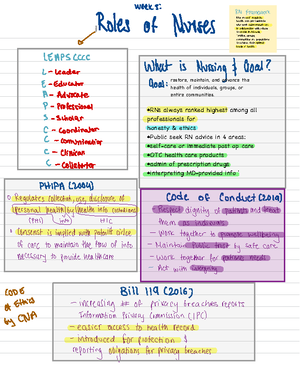 WEEK 5:
Roles of Nurses
LEAPS CCCC
L - Leader
E - Educator
A - Advocate
P - Professional
S - Scholar
C - Coordinator
C - Communicator
C - Clinician
C - Collaborator
What is Nursing & Goal?
Goal: restore, maintain, and advance the
health of individuals, groups, or
entire communities.
•RNs always ranked highest among all
professionals for
honesty & ethics
•Public seek RN advice in 4 areas:
•self-care or immediate post op care
•OTC health care products
•admin of prescription drugs
•interpreting MD-provided info
PHIPA (2004)
Regulates collection, use, disclosure of
personal health by health info custodians
(PHI) (HIC)
Consent is implied within circle
of care to maintain the flow of info
necessary to provide healthcare
Code of Conduct (2019)
- Respect dignity of patients and treat
them as individuals
- Work together to promote wellbeing
- Maintain public trust by safe care
- Work together for patient needs
- Act with integrity
CODE
of
Ethics
by CNA
Bill 119 (2016)
- increasing # of privacy breaches reports
Information Privacy Commission (IPC)
- easier access to health record
- introduced for protection &
reporting obligations for privacy breaches